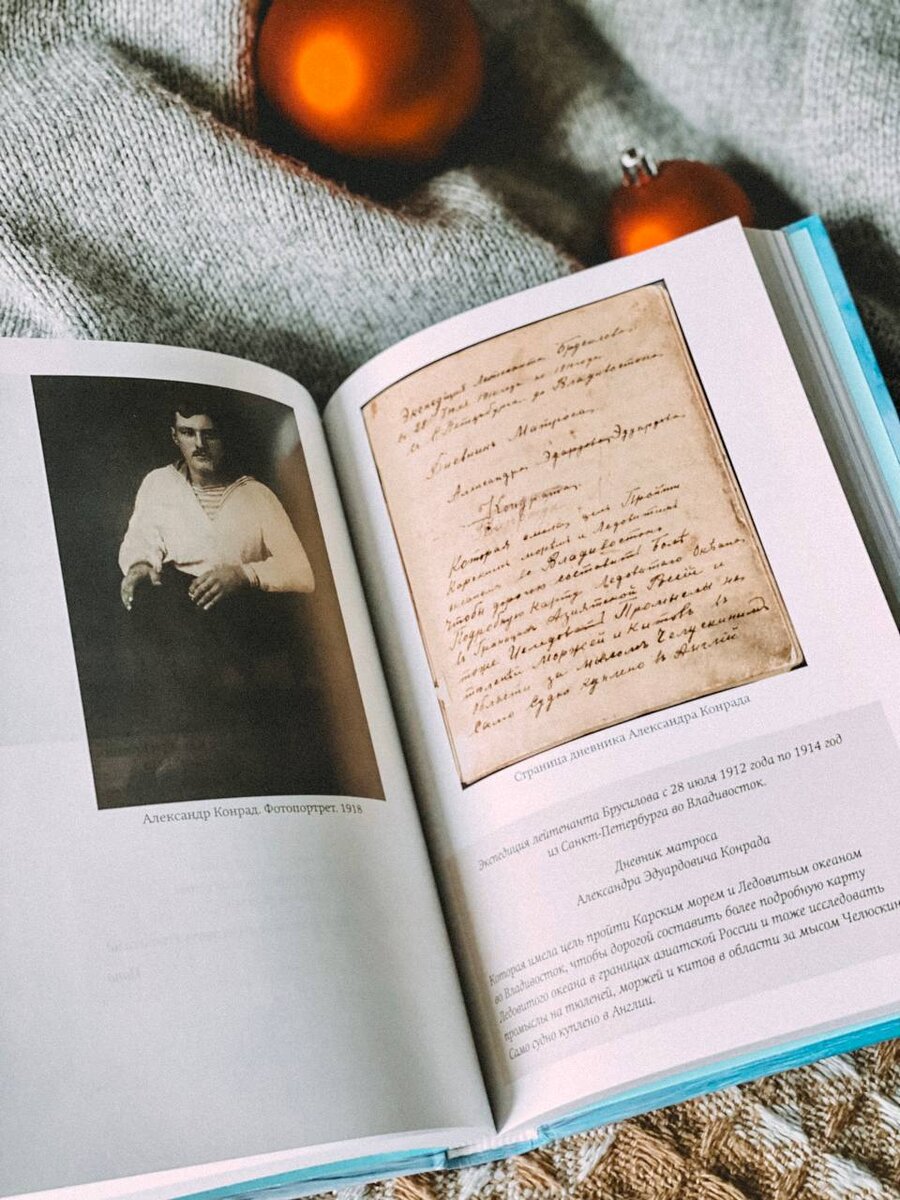 Александр Конрад. Фотопортрет. 1918
Экспедиция Лейтенанта Брусилова
съ 28 Іюля 1912 года по 1914 года
въ Владивостокъ
Дневникъ Матроса
Александра Эдуардовича
Кондрата
Которая имела цель Пройти
Карскимъ моремъ и Ледовитымъ
океаномъ во Владивостокъ
чтобы дорогою составить Более
Подробную карту Ледовитого Океана
въ Границахъ Азиятской и
тоже Изследовать Промыслы на
моржей и китовъ въ
области за мысомъ Челускинимъ
Само судно куплено в Англій
Страница дневника Александра Конрада
Экспедиция лейтенанта Брусилова с 28 июля 1912 года по 1914 год
из Санкт-Петербурга во Владивосток.
Дневник матроса
Александра Эдуардовича Конрада
Которая имела цель пройти Карским морем и Ледовитым океаном
во Владивосток, чтобы дорогой составить более подробную карту
Ледовитого океана в границах азиатской России и тоже исследовать
промыслы на тюленей, моржей и китов в области за мысом Челюскин
Само судно куплено в Англии.